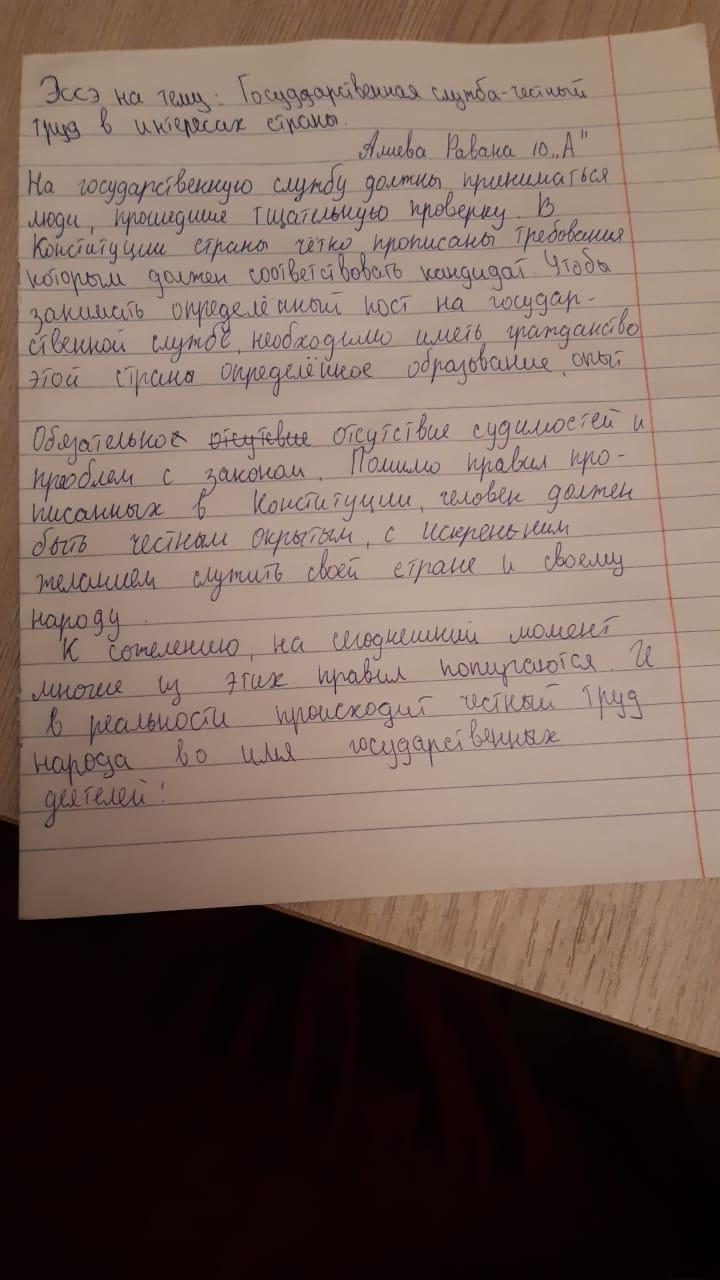 Эссэ на тему: Государственная служба-честный
труд в интересах страны.
Алиева Равана 10 „А"
На государственную службу должны приниматься
люди, прошедшие тщательную проверку. В
Конституции страны чётко прописаны требования
которым должен соответствовать кандидат. Чтобы
занимать определённый пост на государ-
ственной службе, необходимо иметь гражданство
этой страны определённое образование, опыт
Обязательное отсутствие отсутствие судимостей и
проблем с законом. Помимо правил про-
писанных в Конституции, человек должен
быть честным окрытым, с искреньним
желанием служить своей стране и своему
народу.
К сожелению, на сегоднешний момент
многие из этих правил попираются. И
в реальности происходит честный труд
народа во имя государственных
деятелей!